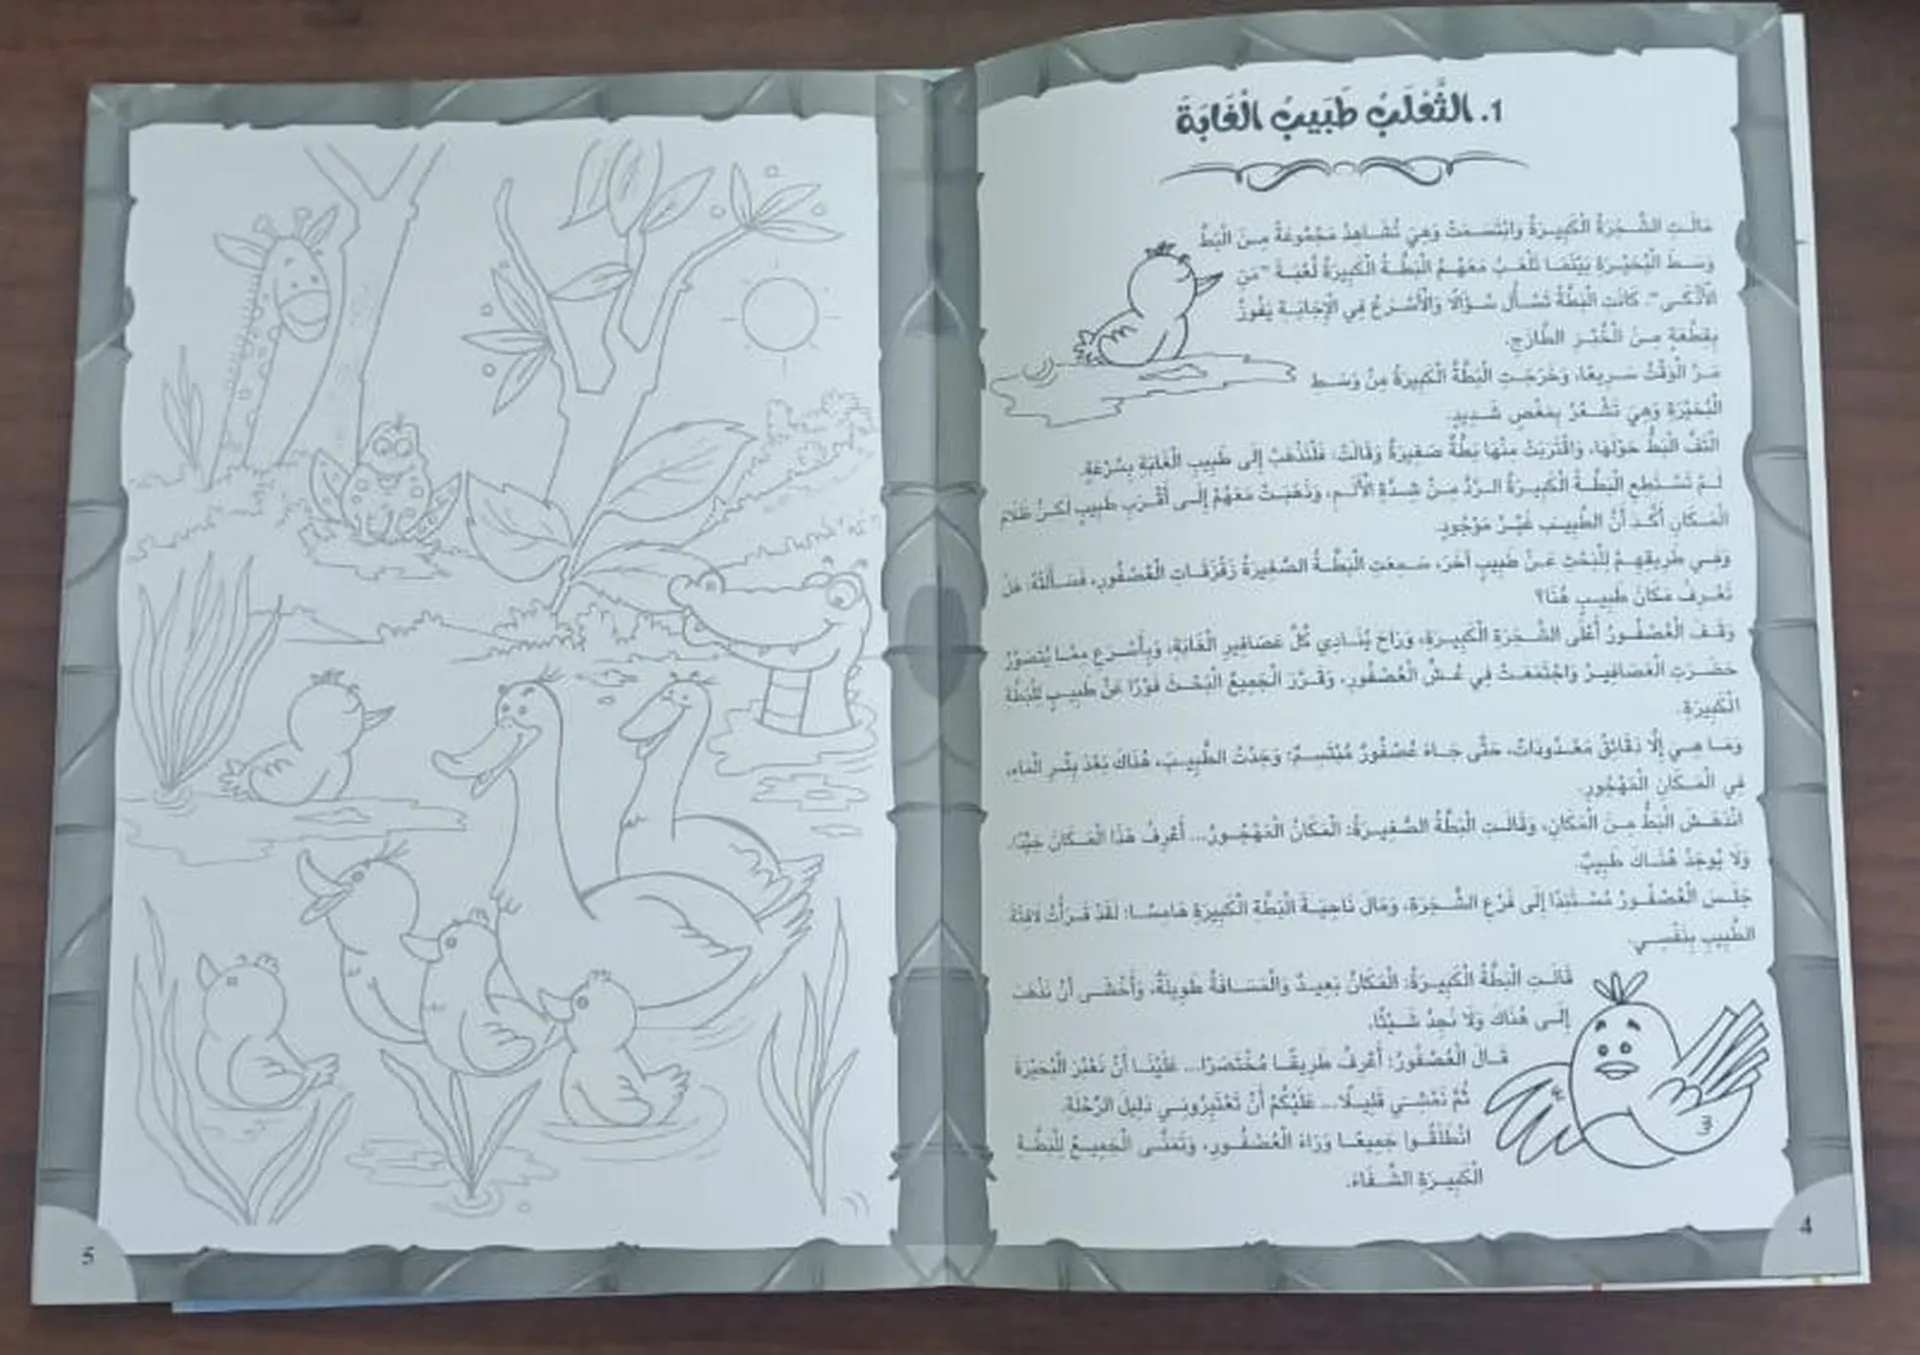 1. الثَّعْلَبُ طَبِيبُ الْغَابَةِ
مَالَتِ الشَّجَرَةُ الْكَبِيرَةُ وَابْتَسَمَتْ وَهِيَ تُشَاهِدُ مَجْمُوعَةً مِنَ الْبَطِّ
وَسَطَ الْبُحَيْرَةِ بَيْنَمَا تَلْعَبُ مَعَهُمُ الْبَطَّةُ الْكَبِيرَةُ لُعْبَةَ "مَنِ
الْأَذْكَى". كَانَتِ الْبَطَّةُ تَسْأَلُ سُؤَالًا وَالْأَسْرَعُ فِي الْإِجَابَةِ يَفُوزُ
بِقِطْعَةٍ مِنَ الْخُبْزِ الطَّازَجِ.
مَرَّ الْوَقْتُ سَرِيعًا، وَخَرَجَتِ الْبَطَّةُ الْكَبِيرَةُ مِنْ وَسَطِ
الْبُحَيْرَةِ وَهِيَ تَشْعُرُ بِمَغْصٍ شَدِيدٍ.
الْتَفَّ الْبَطُّ حَوْلَهَا، وَاقْتَرَبَتْ مِنْهَا بَطَّةٌ صَغِيرَةٌ وَقَالَتْ: فَلْنَذْهَبْ إِلَى طَبِيبِ الْغَابَةِ بِسُرْعَةٍ.
لَمْ تَسْتَطِعِ الْبَطَّةُ الْكَبِيرَةُ الرَّدَّ مِنْ شِدَّةِ الْأَلَمِ، وَذَهَبَتْ مَعَهُمْ إِلَى أَقْرَبِ طَبِيبٍ لَكِنَّ ظَلَامَ
الْمَكَانِ أَكَّدَ أَنَّ الطَّبِيبَ غَيْرُ مَوْجُودٍ.
وَفِي طَرِيقِهِمْ لِلْبَحْثِ عَنْ طَبِيبٍ آخَرَ، سَمِعَتِ الْبَطَّةُ الصَّغِيرَةُ زَقْزَقَاتِ الْعُصْفُورِ، فَسَأَلَتْهُ: هَلْ
تَعْرِفُ مَكَانَ طَبِيبٍ هُنَا؟
وَقَفَ الْعُصْفُورُ أَعْلَى الشَّجَرَةِ الْكَبِيرَةِ، وَرَاحَ يُنَادِي كُلَّ عَصَافِيرِ الْغَابَةِ، وَبِأَسْرَعِ مِمَّا يُتَصَوَّرُ
حَضَرَتِ الْعَصَافِيرُ وَاجْتَمَعَتْ فِي عُشِّ الْعُصْفُورِ، وَقَرَّرَ الْجَمِيعُ الْبَحْثَ فَوْرًا عَنْ طَبِيبٍ لِلْبَطَّةِ
الْكَبِيرَةِ.
وَمَا هِيَ إِلَّا دَقَائِقُ مَعْدُودَاتٌ، حَتَّى جَاءَ عُصْفُورٌ مُبْتَسِمٌ: وَجَدْتُ الطَّبِيبَ، هُنَاكَ بَعْدَ بِئْرِ الْمَاءِ،
فِي الْمَكَانِ الْمَهْجُورِ.
انْدَهَشَ الْبَطُّ مِنَ الْمَكَانِ، وَقَالَتِ الْبَطَّةُ الصَّغِيرَةُ: الْمَكَانُ الْمَهْجُورُ... أَعْرِفُ هَذَا الْمَكَانَ جَيِّدًا،
وَلَا يُوجَدُ هُنَاكَ طَبِيبٌ.
جَلَسَ الْعُصْفُورُ مُسْتَنِدًا إِلَى فَرْعِ الشَّجَرَةِ، وَمَالَ نَاحِيَةَ الْبَطَّةِ الْكَبِيرَةِ هَامِسًا: لَقَدْ قَرَأْتُ لَافِتَةَ
الطَّبِيبِ بِنَفْسِي.
قَالَتِ الْبَطَّةُ الْكَبِيرَةُ: الْمَكَانُ بَعِيدٌ وَالْمَسَافَةُ طَوِيلَةٌ، وَأَخْشَى أَنْ نَذْهَبَ
إِلَى هُنَاكَ وَلَا نَجِدُ شَيْئًا.
قَالَ الْعُصْفُورُ: أَعْرِفُ طَرِيقًا مُخْتَصَرًا... عَلَيْنَا أَنْ نَعْبُرَ الْبُحَيْرَةَ
ثُمَّ نَمْشِي قَلِيلًا... عَلَيْكُمْ أَنْ تَعْتَبِرُونِي دَلِيلَ الرِّحْلَةِ.
انْطَلَقُوا جَمِيعًا وَرَاءَ الْعُصْفُورِ، وَتَمَنَّى الْجَمِيعُ لِلْبَطَّةِ
الْكَبِيرَةِ الشِّفَاءَ.
4
5